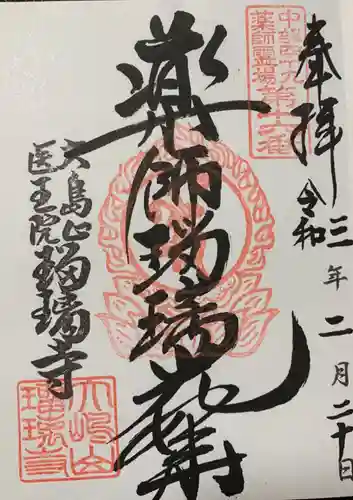 奉拝
令和三年二月二十日
中部四十九
薬師霊場第十二番
薬師瑠璃光
大島山
医王院瑠璃寺
大嶋山
瑠璃寺